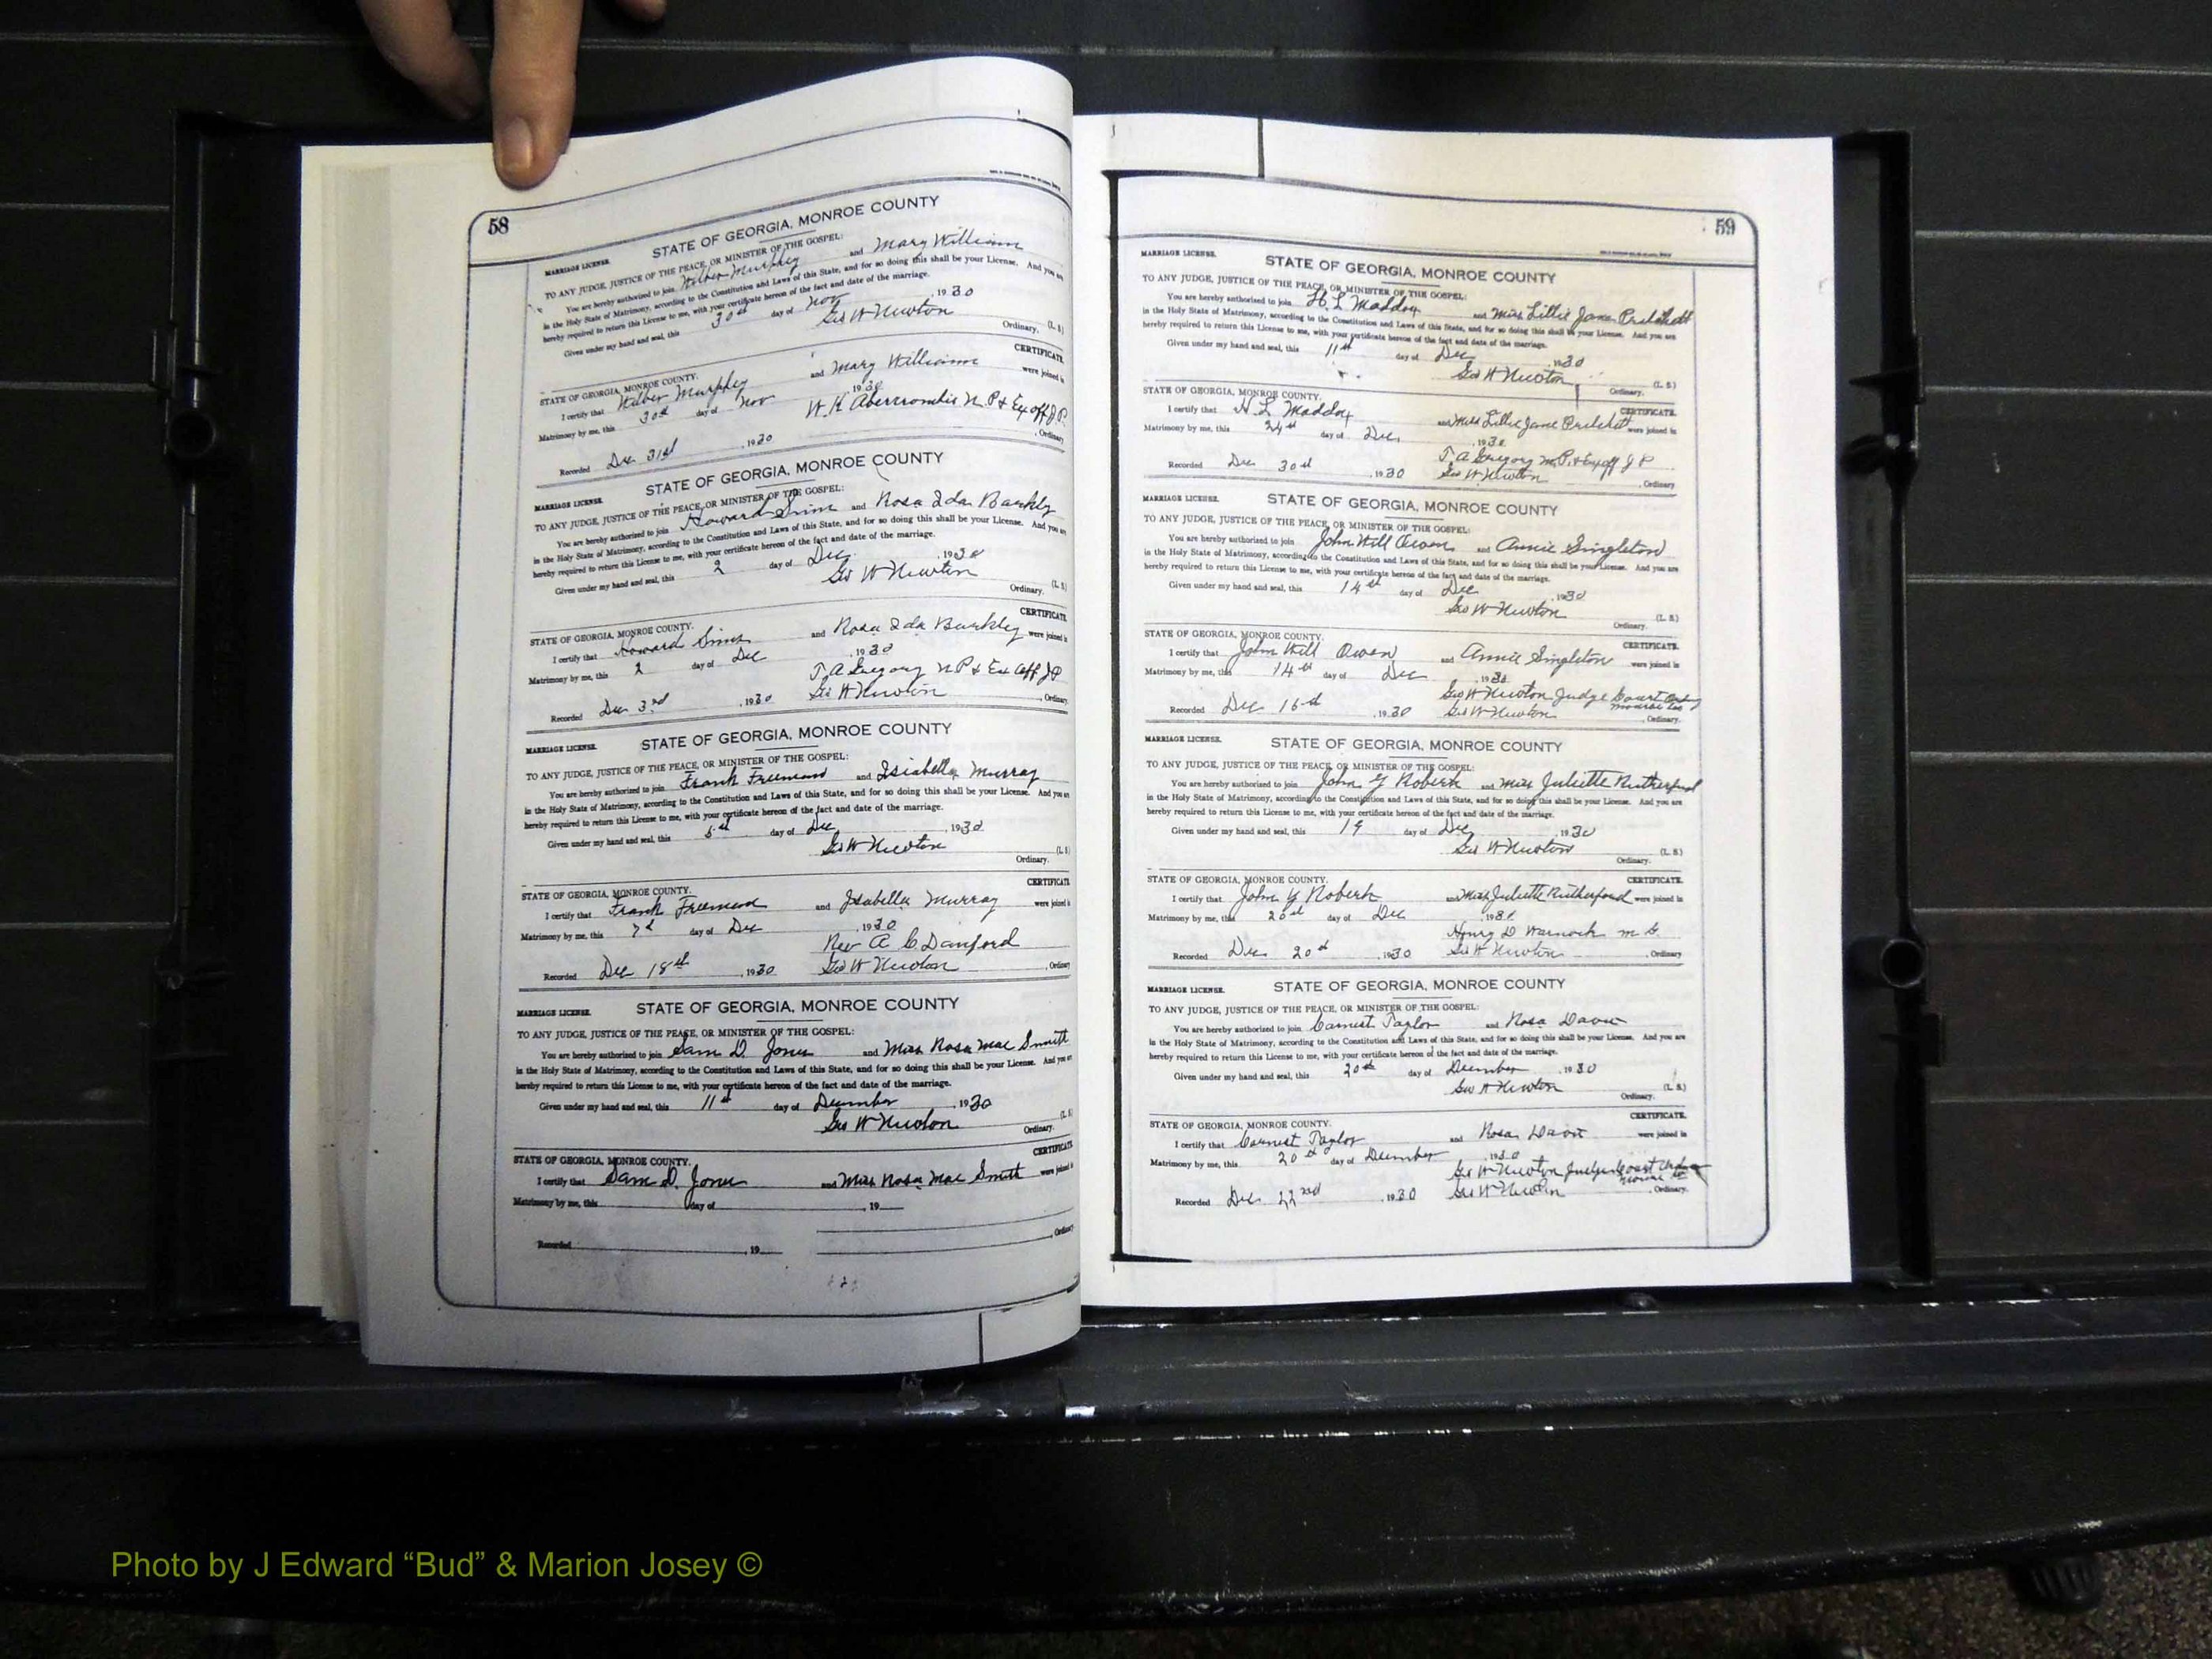 58
STATE OF GEORGIA, MONROE COUNTY
MARRIAGE LICENSE.
TO ANY JUDGE, JUSTICE OF THE PEACE, OR MINISTER OF THE GOSPEL:
You are hereby authorized to join Wilber Murphey and Mary Williams
in the Holy State of Matrimony, according to the Constitution and Laws of this State, and for so doing this shall be your License. And you are
hereby required to return this License to me, with your certificate hereon of the fact and date of the marriage.
Given under my hand and seal, this 30th day of Nov, 1930
Geo W Newton
Ordinary. (L. S.)
CERTIFICATE
STATE OF GEORGIA, MONROE COUNTY.
I certify that Wilber Murphey and Mary Williams were joined in
Matrimony by me, this 30th day of Nov 1930
W. K. Abercrombie N. P & Ex off J. P.
Recorded Dec 31st, 1930 , Ordinary
STATE OF GEORGIA, MONROE COUNTY
MARRIAGE LICENSE.
TO ANY JUDGE, JUSTICE OF THE PEACE, OR MINISTER OF THE GOSPEL:
You are hereby authorized to join Howard Sims and Rosa Ida Barkly
in the Holy State of Matrimony, according to the Constitution and Laws of this State, and for so doing this shall be your License. And you are
hereby required to return this License to me, with your certificate hereon of the fact and date of the marriage.
Given under my hand and seal, this 2 day of Dec, 1930
Geo W Newton
Ordinary. (L. S.)
CERTIFICATE
STATE OF GEORGIA, MONROE COUNTY.
I certify that Howard Sims and Rosa Ida Barkley were joined in
Matrimony by me, this 2 day of Dec, 1930
T. A Gregory N P & Ex Off J P
Recorded Dec 3rd, 1930 Geo W Newton, Ordinary
STATE OF GEORGIA, MONROE COUNTY
MARRIAGE LICENSE.
TO ANY JUDGE, JUSTICE OF THE PEACE, OR MINISTER OF THE GOSPEL:
You are hereby authorized to join Frank Freeman and Isiabella Murray
in the Holy State of Matrimony, according to the Constitution and Laws of this State, and for so doing this shall be your License. And you are
hereby required to return this License to me, with your certificate hereon of the fact and date of the marriage.
Given under my hand and seal, this day of Dec, 1930
Geo W Newton
Ordinary. (L. S)
CERTIFICATE
STATE OF GEORGIA, MONROE COUNTY.
I certify that Frank Freeman and Isabella Murray were joined i
Matrimony by me, this 7th day of Dec, 1930
Rev A C Danford
Recorded Dec 18th, 1930 Geo W Newton, Ordinary
STATE OF GEORGIA, MONROE COUNTY
MARRIAGE LICENSE.
TO ANY JUDGE, JUSTICE OF THE PEACE, OR MINISTER OF THE GOSPEL:
You are hereby authorized to join Sam D. Jones and Miss Rosa Mae Smith
in the Holy State of Matrimony, according to the Constitution and Laws of this State, and for so doing this shall be your License. And you are
hereby required to return this License to me, with your certificate hereon of the fact and date of the marriage.
Given under my hand and seal, this 11th day of December, 1930
Geo W Newton
Ordinary. (L. S
CERTIFICATE
STATE OF GEORGIA, MONROE COUNTY.
I certify that Sam D. Jones and Miss Rosa Mae Smith were joined i
Matrimony by me, this day of , 19
, Ordinary
Recorded , 19
59
MARRIAGE LICENSE.
STATE OF GEORGIA, MONROE COUNTY
TO ANY JUDGE, JUSTICE OF THE PEACE, OR MINISTER OF THE GOSPEL:
You are hereby authorized to join H. L Maddox and Miss Lillie Jane Pritchett
in the Holy State of Matrimony, according to the Constitution and Laws of this State, and for so doing this shall be your License. And you are
hereby required to return this License to me, with your certificate hereon of the fact and date of the marriage.
Given under my hand and seal, this 11th day of Dec, 1930
Geo W Newton
Ordinary. (L. S.)
STATE OF GEORGIA, MONROE COUNTY. CERTIFICATE.
I certify that H. L Maddox and Miss Lillie Jane Pritchett were joined in
Matrimony by me, this 24th day of Dec, 1930
T. A Gregory N. P. & Ex off J P
Recorded Dec 30th, 1930 Geo W Newton, Ordinary
MARRIAGE LICENSE. STATE OF GEORGIA, MONROE COUNTY
TO ANY JUDGE, JUSTICE OF THE PEACE, OR MINISTER OF THE GOSPEL:
You are hereby authorized to join John Will Owen and Annie Singleton
in the Holy State of Matrimony, according to the Constitution and Laws of this State, and for so doing this shall be your License. And you are
hereby required to return this License to me, with your certificate hereon of the fact and date of the marriage.
Given under my hand and seal, this 14th day of Dec, 1930
Geo W Newton
Ordinary. (L. S.)
STATE OF GEORGIA, MONROE COUNTY. CERTIFICATE.
I certify that John Will Owen and Annie Singleton were joined in
Matrimony by me, this 14th day of Dec, 1930
Geo W Newton Judge Court Ordy
Monroe Co
Recorded Dec 16th, 1930 Geo W Newton, Ordinary.
MARRIAGE LICENSE. STATE OF GEORGIA, MONROE COUNTY
TO ANY JUDGE, JUSTICE OF THE PEACE, OR MINISTER OF THE GOSPEL:
You are hereby authorized to join John Y Roberts and Miss Juliette Rutherford
in the Holy State of Matrimony, according to the Constitution and Laws of this State, and for so doing this shall be your License. And you are
hereby required to return this License to me, with your certificate hereon of the fact and date of the marriage.
Given under my hand and seal, this 19 day of Dec, 1930
Geo W Newton
Ordinary. (L. S.)
STATE OF GEORGIA, MONROE COUNTY. CERTIFICATE.
I certify that John Y Roberts and Miss Juliette Rutherford were joined in
Matrimony by me, this 20th day of Dec, 1930
Henry D Warnock M. G.
Recorded Dec 20th, 1930 Geo W Newton, Ordinary
MARRIAGE LICENSE. STATE OF GEORGIA, MONROE COUNTY
TO ANY JUDGE, JUSTICE OF THE PEACE, OR MINISTER OF THE GOSPEL:
You are hereby authorized to join Earnest Taylor and Rosa Davis
in the Holy State of Matrimony, according to the Constitution and Laws of this State, and for so doing this shall be your License. And you are
hereby required to return this License to me, with your certificate hereon of the fact and date of the marriage.
Given under my hand and seal, this 20th day of December, 1930
Geo W Newton
Ordinary. (L. S.)
CERTIFICATE.
STATE OF GEORGIA, MONROE COUNTY.
I certify that Earnest Taylor and Rosa Davis were joined in
Matrimony by me, this 20th day of December, 1930
Geo W Newton Judge Court
Monroe Co
Recorded Dec 22nd, 1930 Geo W Newton, Ordinary.
Photo by J Edward “Bud” & Marion Josey ©